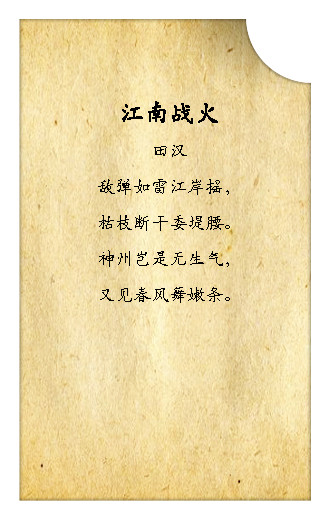 江南战火
田汉
敌弹如雷江岸摇，
枯枝断干委堤腰。
神州岂是无生气，
又见春风舞嫩条。